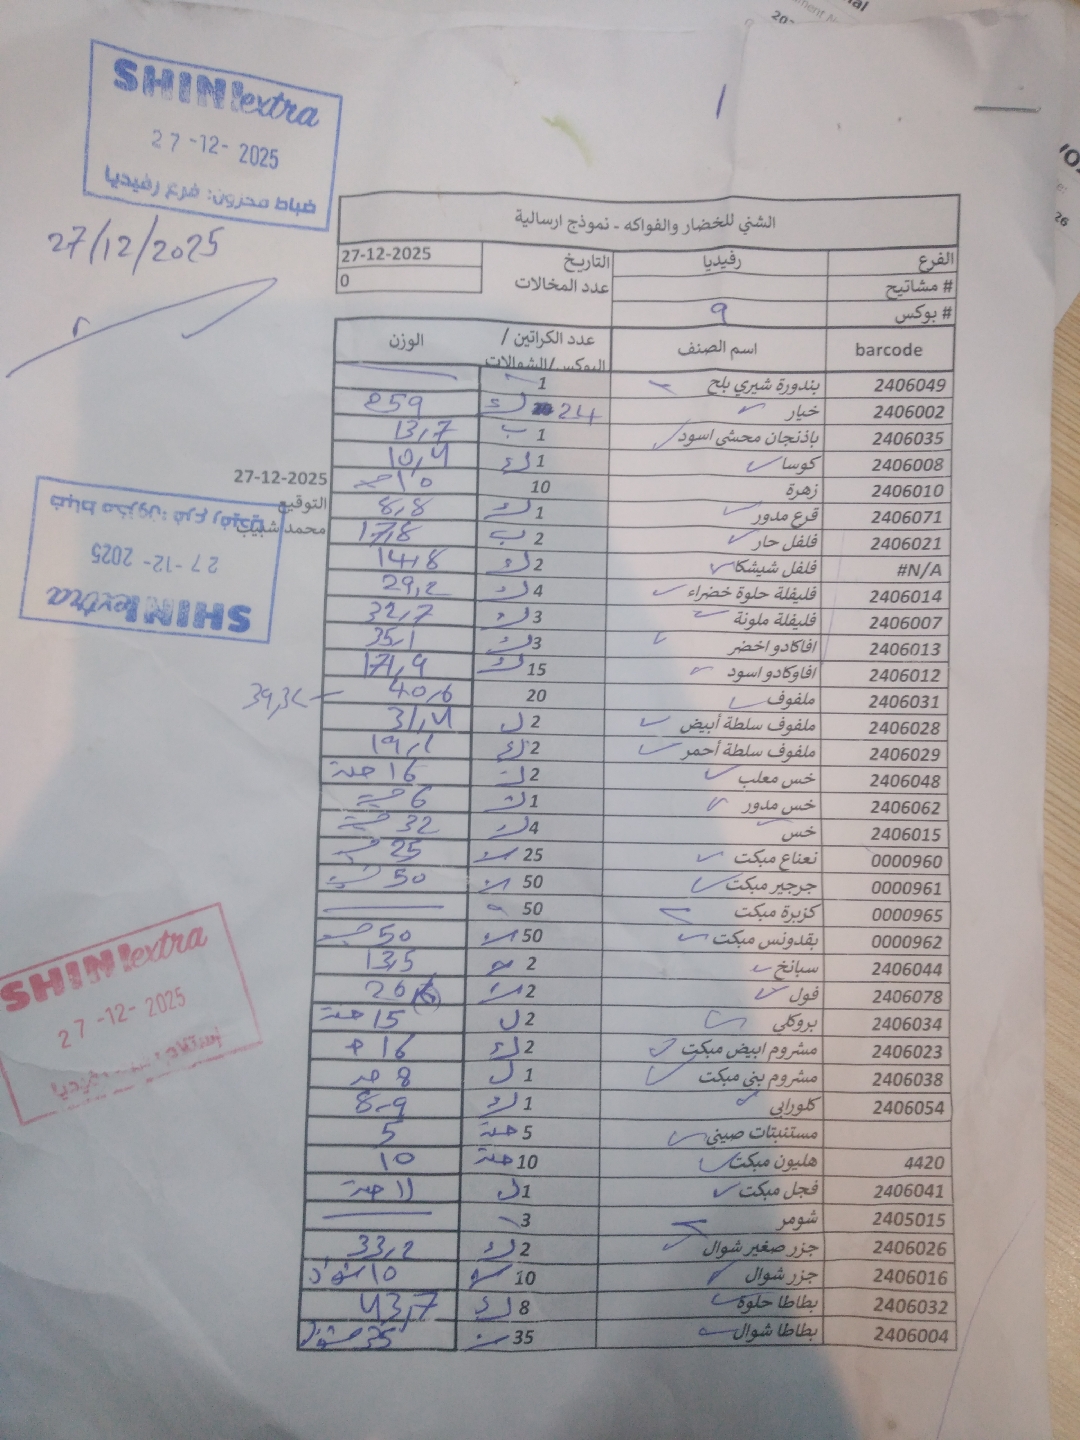 SHINI extra
27-12-2025
ضباط مخزون: فرع رفيديا
27/12/2025
الشني للخضار والفواكه - نموذج ارسالية
الفرع رفيديا التاريخ 27-12-2025
# مشاتيح عدد المخالات 0
# بوكس 9
barcode اسم الصنف عدد الكراتين / البوكس/الشوالات الوزن
2406049 بندورة شيري بلح 1
2406002 خيار 24 ك 259
2406035 باذنجان محشي اسود 1 ب 13,7
2406008 كوسا 1 ك 10,4
2406010 زهرة 10 10
2406071 قرع مدور 1 ك 8,8
2406021 فلفل حار 2 ب 17,8
#N/A فلفل شيشكا 2 ك 14,8
2406014 فليفلة حلوة خضراء 4 ك 29,2
2406007 فليفلة ملونة 3 ك 32,7
2406013 افاكادو اخضر 3 ك 35,1
2406012 افاوكادو اسود 15 ك 171,9
2406031 ملفوف 20 40,6
2406028 ملفوف سلطة أبيض 2 ل 31,4
2406029 ملفوف سلطة أحمر 2 ك 19,1
2406048 خس معلب 2 16 حبة
2406062 خس مدور 1 6
2406015 خس 4 ك 32
0000960 نعناع مبكت 25 25
0000961 جرجير مبكت 50 50
0000965 كزبرة مبكت 50
0000962 بقدونس مبكت 50 50
2406044 سبانخ 2 13,5
2406078 فول 2 26
2406034 بروكلي 2 ل 15 حبة
2406023 مشروم ابيض مبكت 2 ك 16 ح
2406038 مشروم بني مبكت 1 ل 8
2406054 كلورابي 1 ك 8-9
مستنبتات صيني 5 حبة 5
4420 هليون مبكت 10 حبة 10
2406041 فجل مبكت 1 ل 11 حبة
2405015 شومر 3
2406026 جزر صغير شوال 2 ك 33,2
2406016 جزر شوال 10 10 شوال
2406032 بطاطا حلوة 8 ك 43,7
2406004 بطاطا شوال 35 35 شوال
27-12-2025
التوقيع
محمد شبيب
ضباط مخزون: فرع رفيديا
27-12-2025
SHINI extra
SHINI extra
27-12-2025